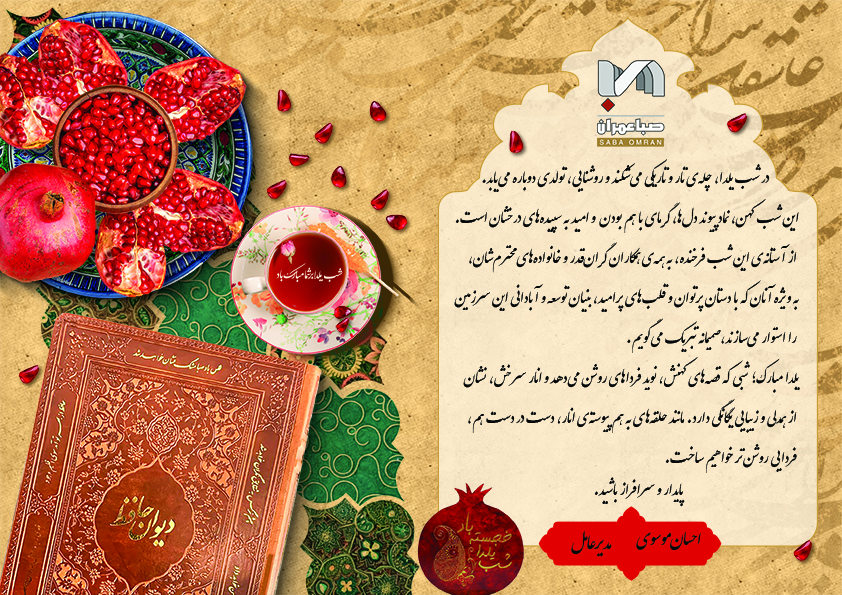 صبا عمران
SABA OMRAN
در شب یلدا، چله‌ی تار و تاریکی می‌شکند و روشنایی، تولدی دوباره می‌یابد.
این شب کهن، نماد پیوند دل‌ها، گرمای با هم بودن و امید به سپیده‌های درخشان است.
از آستانه‌ی این شب فرخنده، به همه‌ی همکاران گران‌قدر و خانواده‌های محترم‌شان،
به ویژه آنان که با دستان پرتوان و قلب‌های پرامید، بنیان توسعه و آبادانی این سرزمین
را استوار می‌سازند، صمیمانه تبریک می‌گویم.
یلدا مبارک؛ شبی که قصه‌های کهنش، نوید فرداهای روشن می‌دهد و انار سرخش، نشان
از همدلی و زیبایی یگانگی دارد. مانند حلقه‌های به هم پیوسته‌ی انار، دست در دست هم،
فردایی روشن‌تر خواهیم ساخت.
پایدار و سرافراز باشید.
احسان موسوی مدیرعامل
شب یلدا بر شما مبارک باد
دیوان حافظ
خجسته باد
شب یلدا